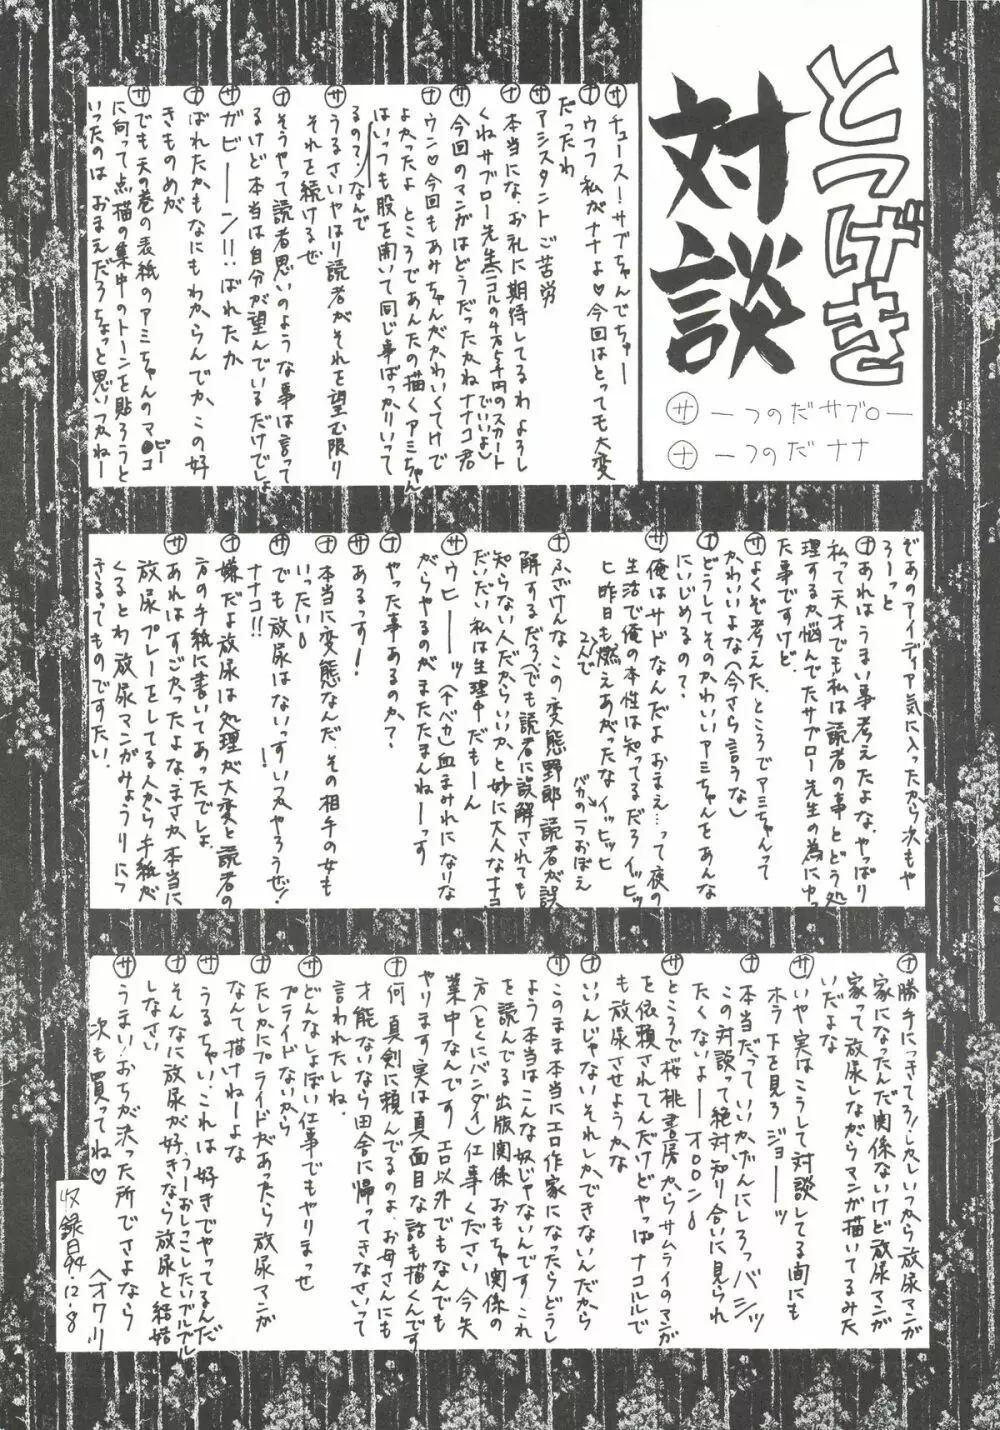 とつげき
対談
サ ーつのだサブローー
ナ ーつのだナナ
サ チュースーサブちゃんでちゅー
ナ ウフフ 私がナナよ♡今回はとっても大変
だったわ
サ アシスタントご苦労
ナ 本当にな、お礼に期待してるわよろし
くねサブロー先生(ニコルの4万5千円のスカート
でいいよ)
サ 今回のマンガはどうだったかねナナコ君
ナ ウン♡今回もあみちゃんがかわいくてけで
よかったよ ところであんたの描くアミちゃん
はいっつも股を開いて同じ事ばっかりいって
るのってなんで
サ うるさいやはり読者がそれを望む限り
それを続けるぜ
ナ そうやって読者思いのような事は言って
るけど本当は自分が望んでいるだけでしょ
サ ガビーーン!!ばれたか
ナ ばれたかもなにもわからんでか、この好
きものめが
サ でも天の巻の表紙のアミちゃんのマ●コ
ピー
に向って点描の集中のトーンを貼ろうと
いったのはおまえだろちょっと思いつかねー
ぞあのアイディア気に入ったから次もや
ろーっと
ナ あれはうまい事考えたよな、やっぱり
私って天才でも私は読者の事とどう処
理するか悩んでたサブロー先生の為にやっ
た事ですけど、
サ よくぞ考えた、ところでアミちゃんって
かわいいよな(今さら言うな)
ナ どうしてそのかわいいアミちゃんをあんな
にいじめるの?
サ 俺はサドなんだよおまえ…って夜の
生活で俺の本性は知ってるだろイッヒッ
ヒ昨日も燃えあがったなイッヒッヒ
2人で
バカの一つおぼえ
ナ ふざけんな、この変態野郎 読者が誤
解するだろ(でも読者に誤解されても
知らない人だからいいかと妙に大人なナナコ
だいだい私は生理中だもーん
サ ウヒーーッ(すベカ)血まみれになりな
がらやるのがまたたまんねーーっす
ナ やった事あるのか?
サ あるっす!
ナ 本当に変態なんだ、その相手の女も
いったい。
サ でも放尿はないっすいつかやろうぜ!
ナナコ!!
ナ 嫌だよ放尿は処理が大変と読者の
方の手紙に書いてあったでしょ
サ あれはすごかったよな、まさか本当に
放尿プレーをしてる人から手紙が
くるとわ 放尿マンガみょうりにつ
きるってものですたい、
ナ 勝手につきてろ!しかしいつから放尿マンガ
家になったんだ関係ないけど放尿マンガ
家って放尿しながらマンガ描いてるみた
いだよな
サ いや実はこうして対談してる間にも
ホラ下を見ろ ジョーーッ
ナ 本当だっていいかげんにしろっ バシッ
この対談って絶対知り合いに見られ
たくないよーーオロロン。
サ ところで桜桃書房からサムライのマンガ
を依頼されてんだけどやっぱナコルルで
も放尿させようかな
ナ いいんじゃないそれしかできないんだから
サ このまま本当にエロ作家になったらどうし
よう本当はこんな奴じゃないんです、これ
を読んでる出版関係 おもちゃ関係の
方(とくにバンダイ)仕事ください、今失
業中なんです エロ以外でもなんでも
やります 実は真面目な話も描くんです
ナ 何、真剣に頼んでるのよ、お母さんにも
才能ないなら田舎に帰ってきなさいって
言われたしね、
サ どんなしょぼい仕事でもやりまっせ
プライドないから
ナ たしかにプライドがあったら放尿マンガ
なんて描けねーーよな
サ うるちゃい、これは好きでやってるんだ
うーおしっこしたいブルブル
ナ そんなに放尿が好きなら放尿と結婚
しなさい
サ うまい!おちが決った所でさよなら
次も買ってね♡ 〈オワリ〉
収録日94.12.8